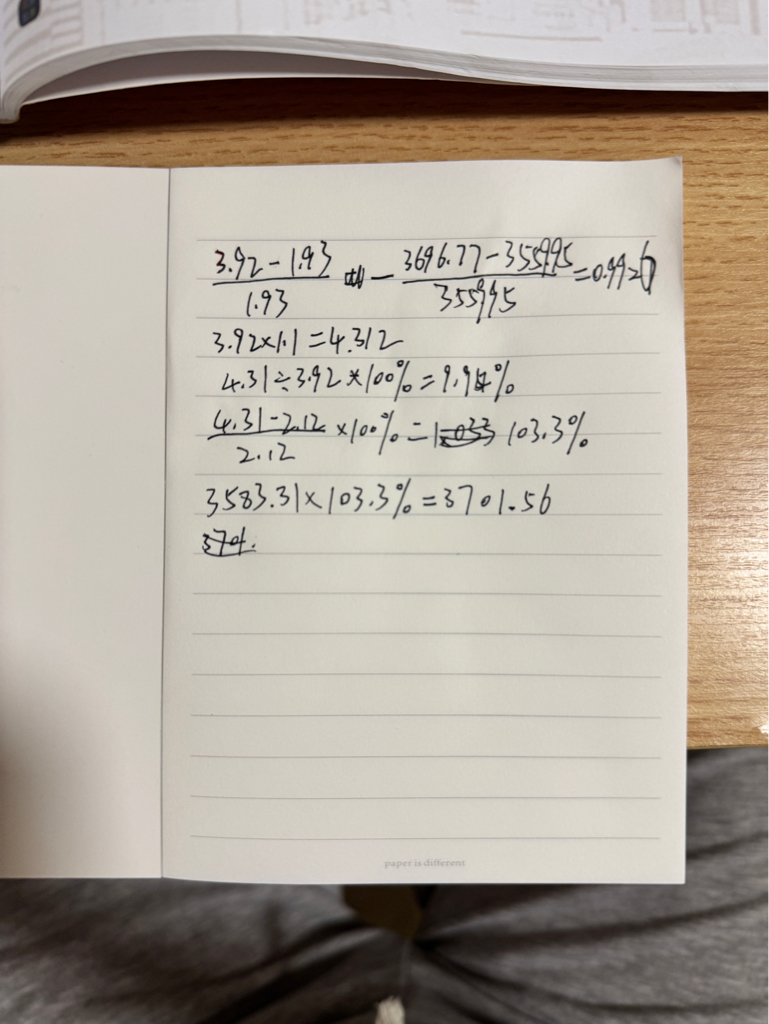 3.92-1.93/1.93 - 3696.77-3559.95/3559.95=0.9926
3.92×1.1=4.312
4.31÷3.92×100%=9.94%
4.31-2.12/2.12 ×100%=103.3%
3583.31×103.3%=3701.56
370
paper is different